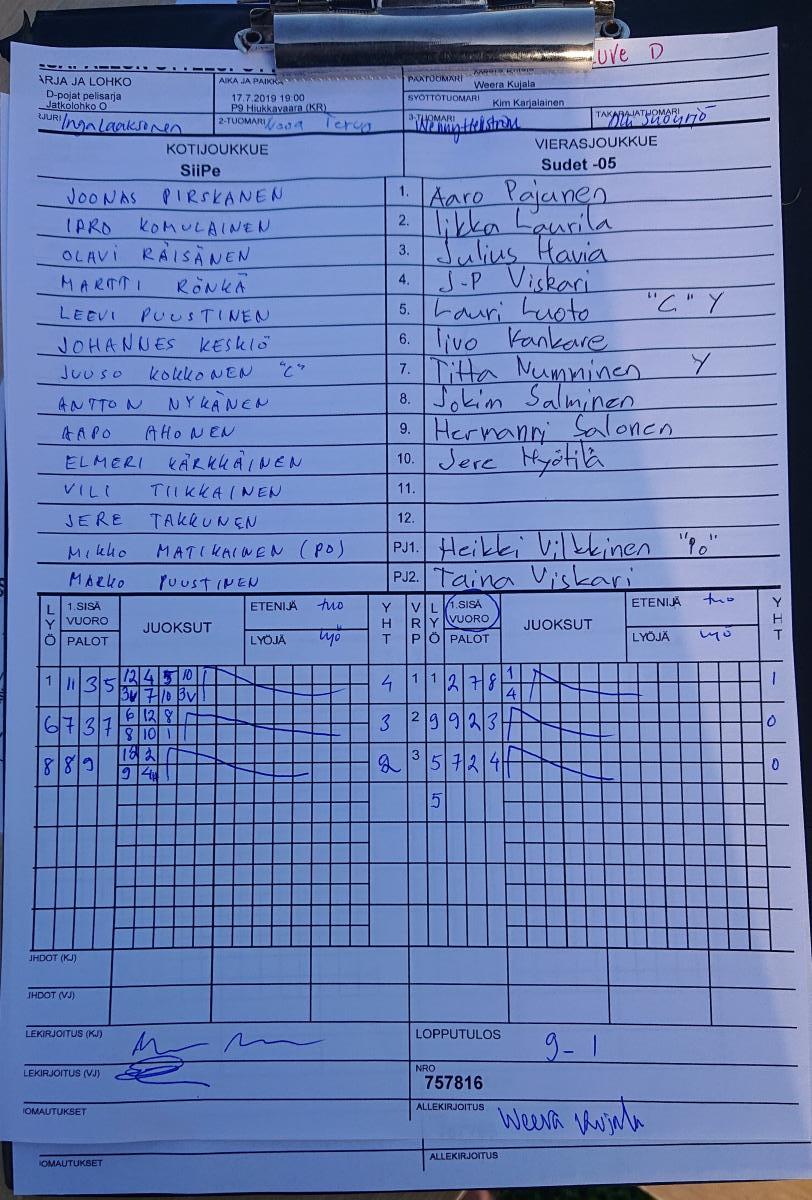 UVE D
ARJA JA LOHKO
D-pojat pelisarja
Jatkolohko O
AIKA JA PAIKKA
17.7.2019 19:00
P9 Hiukkavaara (KR)
PÄÄTUOMARI
Weera Kujala
SYÖTTÖTUOMARI
Kim Karjalainen
URI Inga Laaksonen
2-TUOMARI
3-TUOMARI
TAKARAJATUOMARI
KOTIJOUKKUE
SiiPe
VIERASJOUKKUE
Sudet -05
JOONAS PIRSKANEN 1. Aaro Pajunen
IPRO KOMULAINEN 2. Iikka Laurila
OLAVI RÄISÄNEN 3. Julius Havia
MARTTI RÖNKÄ 4. J-P Viskari
LEEVI PUUSTINEN 5. Lauri Luoto "C" Y
JOHANNES KESKIÖ 6. Iivo Kankare
JUUSO KOKKONEN "C" 7. Titta Numminen Y
ANTTON NYKÄNEN 8. Jokim Salminen
AAPO AHONEN 9. Hermanni Salonen
ELMERI KÄRKKÄINEN 10. Jere Hyötilä
VILI TIIKKAINEN 11.
JERE TAKKUNEN 12.
MIKKO MATIKAINEN (PO) PJ1. Heikki Vilkkinen "Po"
MARKO PUUSTINEN PJ2. Taina Viskari
LYÖ 1.SISÄ VUORO PALOT JUOKSUT ETENIJÄ tuo LYÖJÄ lyö YHT VRP LYÖ 1.SISÄ VUORO PALOT JUOKSUT ETENIJÄ tuo LYÖJÄ lyö YHT
1 11 3 5 12 4 5 10 4 1 1 2 7 8 1 1
3V 7 10 3V 4
6 7 3 7 6 12 8 3 2 9 9 2 3 0
8 10 1
8 8 9 12 2 2 3 5 7 2 4 0
9 4
5
JHDOT (KJ)
JHDOT (VJ)
LEKIRJOITUS (KJ)
LOPPUTULOS 9-1
LEKIRJOITUS (VJ)
NRO
757816
OMAUTUKSET
ALLEKIRJOITUS Weera Kujala
OMAUTUKSET
ALLEKIRJOITUS